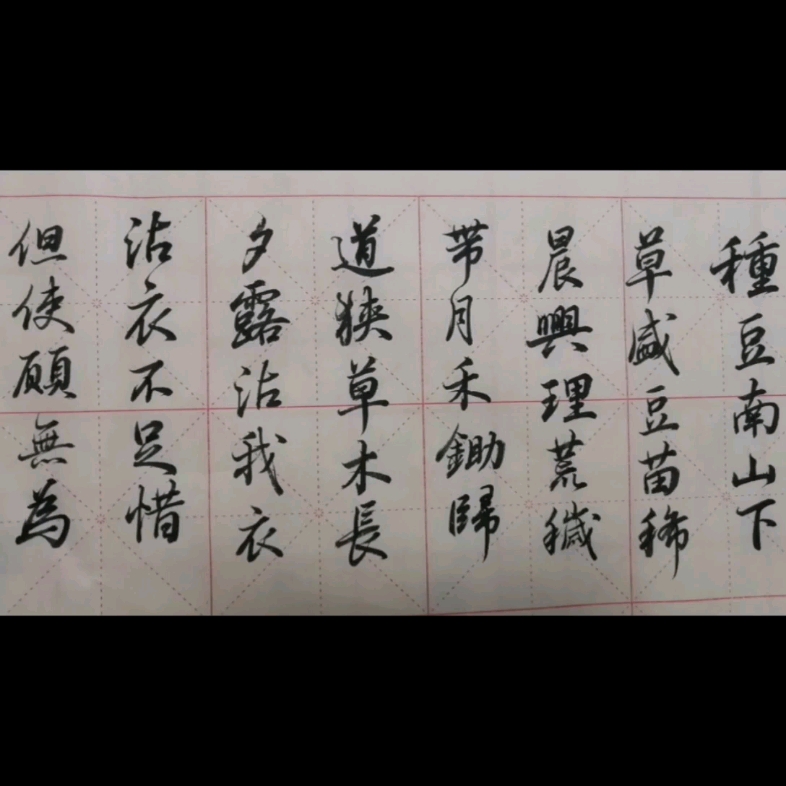 種豆南山下
草盛豆苗稀
晨興理荒穢
带月禾鋤歸
道狹草木長
夕露沾我衣
沾衣不足惜
但使願無為